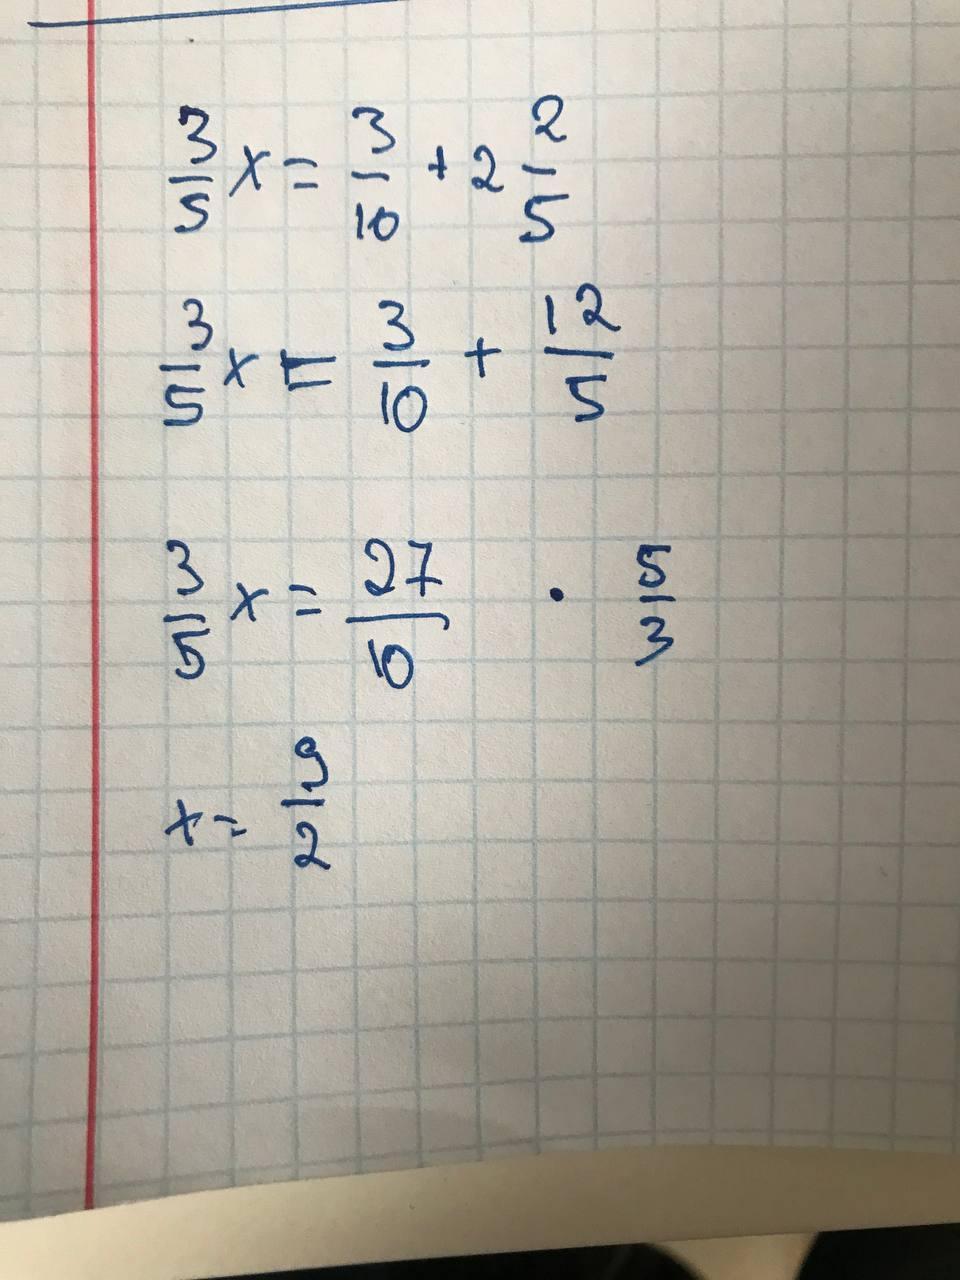 3/5 x = 3/10 + 2 2/5
3/5 x = 3/10 + 12/5
3/5 x = 27/10 · 5/3
x = 9/2